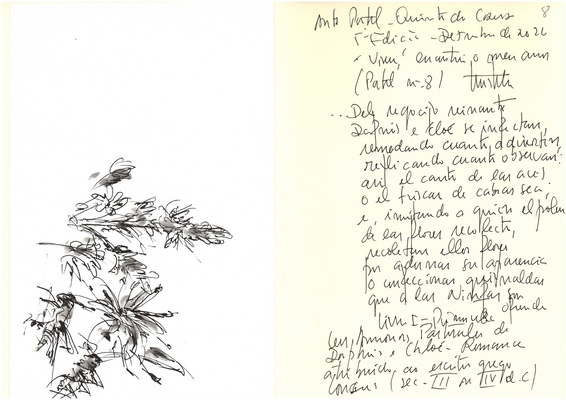 Postal - Quinta do
1ª Edição - Dezembro de 202
" Viva, encontrei o meu amor
(Postal nº 8)
... Del regocijo reinante
Dafnis e Cloé se infectan,
remedando cuanto advierten,
replicando cuanto observan:
así el canto de las aves,
o el triscar de cabras sea,
e, imitando a quien el polen
de las flores recolecta,
recolectan ellos flores
por adornar su apariencia
o confeccionar guirnaldas
que a las Ninfas son ofrenda
Livro I - Primavera
Pastorales de
Daphnis e Chloé - Romance
atribuído ao escritor grego
(sec. III ou IV d.C)
8